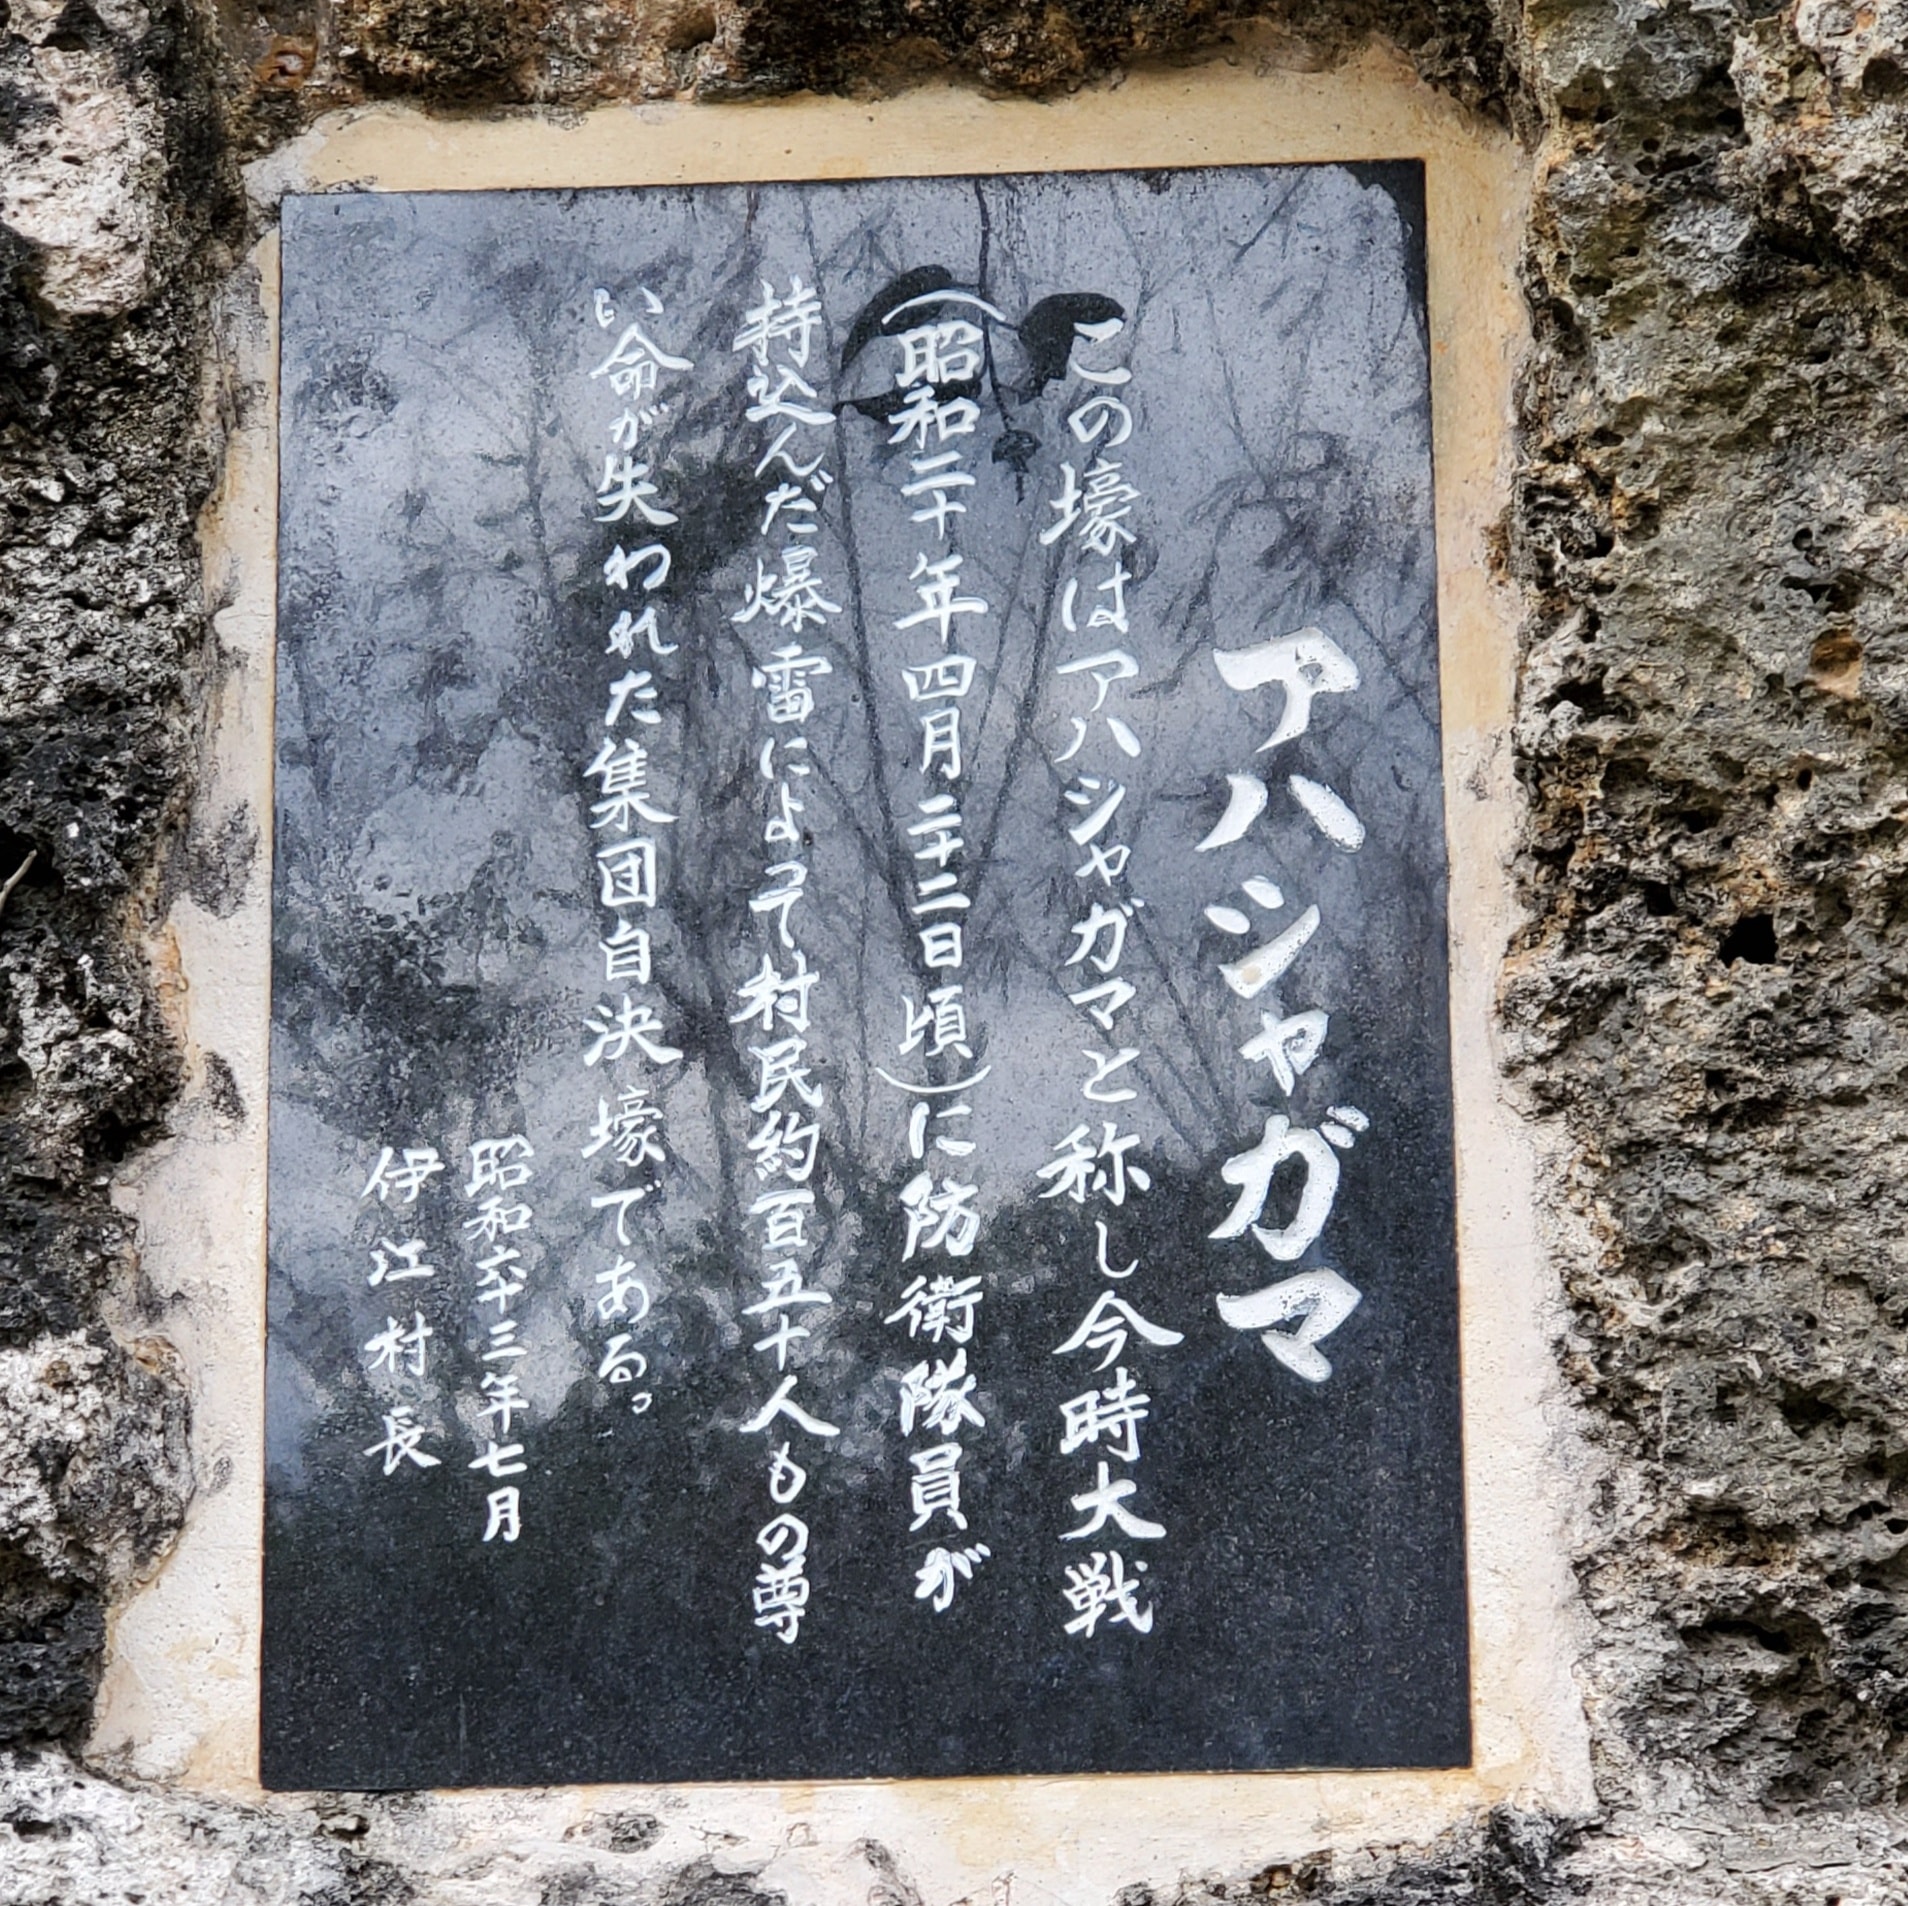 アハシャガマ
この壕はアハシャガマと称し今時大戦
（昭和二十年四月二十二日頃）に防衛隊員が
持込んだ爆雷によって村民約百五十人もの尊
い命が失われた集団自決壕である。
昭和六十三年七月
伊江村長